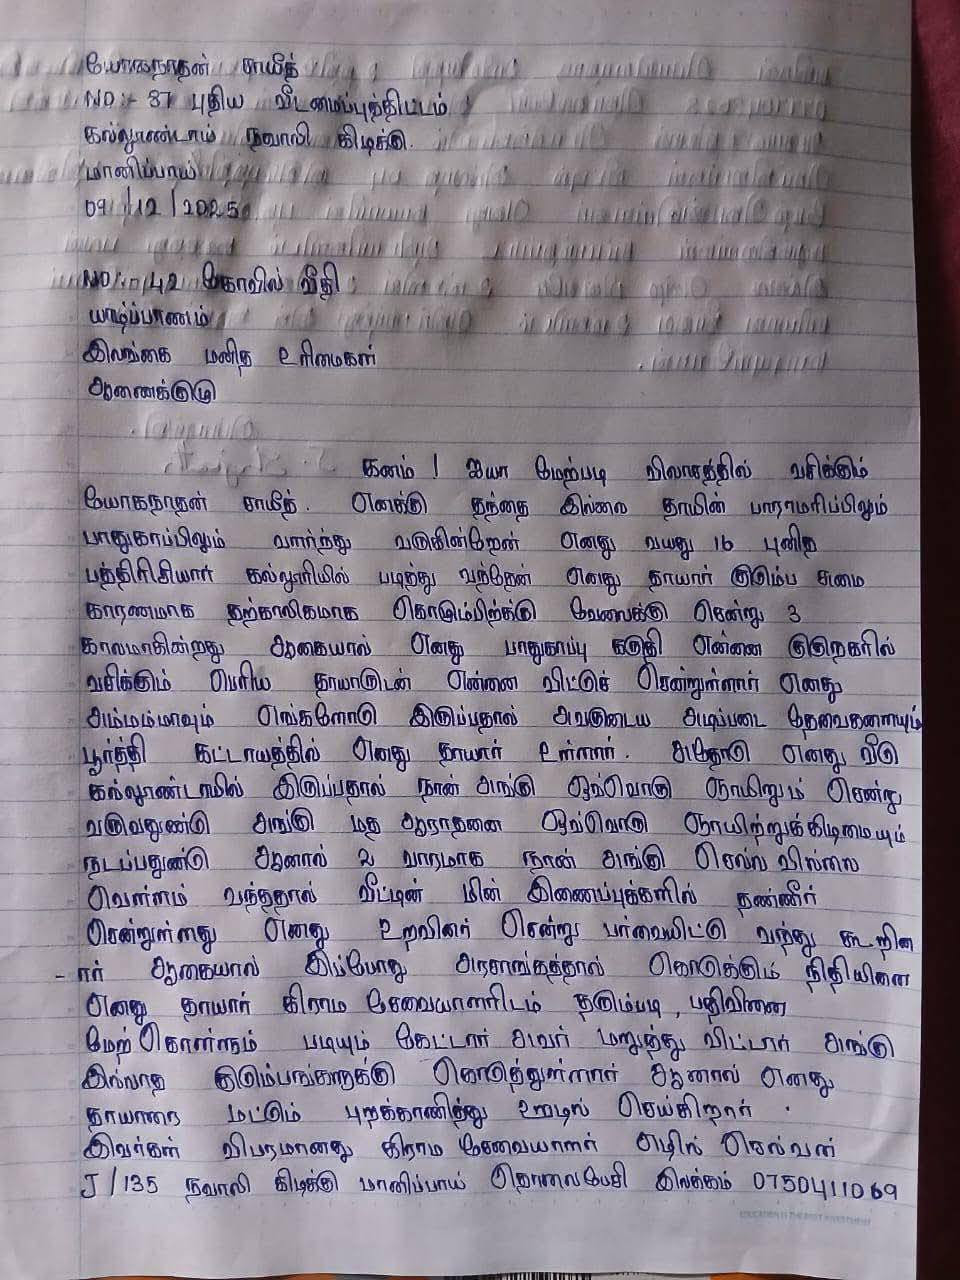 யோகநாதன் சாயீத்
NO:- 37 புதிய வீடமைப்புத்திட்டம்
கல்லூண்டாய் நவாலி கிழக்கு.
மானிப்பாய்
09/12/2025
NO:- 42 கோவில் வீதி
யாழ்ப்பாணம்
இலங்கை மனித உரிமைகள்
ஆணைக்குழு
கனம் ! ஐயா மேற்படி விலாசத்தில் வசிக்கும்
யோகநாதன் சாயீத். எனக்கு தந்தை இல்லை தாயின் பாராமரிப்பிலும்
பாதுகாப்பிலும் வளர்ந்து வருகின்றேன் எனது வயது 16 புனித
பத்திரிசியார் கல்லூரியில் படித்து வந்தேன் எனது தாயார் குடும்ப சுமை
காரணமாக தற்காலிகமாக கொழும்பிற்க்கு வேலைக்கு சென்று 3
காலமாகின்றது ஆகையால் எனது பாதுகாப்பு கருதி என்னை குருநகரில்
வசிக்கும் பெரிய தாயாருடன் என்னை விட்டுச் சென்றுள்ளார் எனது
அம்மம்மாவும் எங்களோடு இருப்பதால் அவருடைய அடிப்படை தேவைகளையும்
பூர்த்தி கட்டாயத்தில் எனது தாயார் உள்ளார். அதோடு எனது வீடு
கல்லூண்டாயில் இருப்பதால் நான் அங்கு ஒவ்வொரு ஞாயிறும் சென்று
வருவதுண்டு அங்கு மத ஆராதனை ஒவ்வொரு ஞாயிற்றுக்கிழமையும்
நடப்பதுண்டு ஆனால் 2 வாரமாக நான் அங்கு செல்ல வில்லை
வெள்ளம் வந்ததால் வீட்டின் மின் இணைப்புக்களில் தண்ணீர்
சென்றுள்ளது எனது உறவினர் சென்று பார்வையிட்டு வந்து கூறின
- ார் ஆகையால் இப்போது அரசாங்கத்தால் கொடுக்கும் நிதியினை
எனது தாயார் கிராம சேவையாளரிடம் தரும்படி, பதிவினை
மேற்கொள்ளும் படியும் கேட்டார் அவர் மறுத்து விட்டார் அங்கு
இல்லாத குடும்பங்களுக்கு கொடுத்துள்ளார் ஆனால் எனது
தாயாரை மட்டும் புறக்காணித்து ஊழல் செய்கிறார்.
இவர்கள் விபரமானது கிராம சேவையாளர் எழில் செல்வன்
J/135 நவாலி கிழக்கு மானிப்பாய் தொலைபேசி இலக்கம் 0750411069
EDUCATION IS THE BEST INVESTMENT